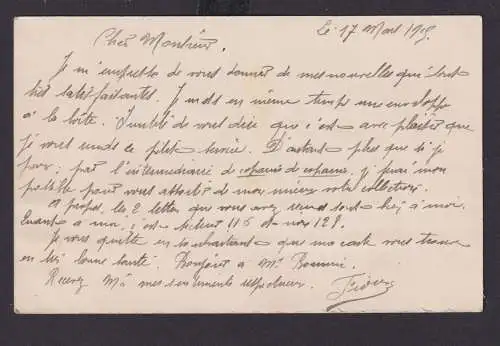 Le 17 Mars 1919.
Cher Monsieur.
Je m'empresse de vous donner de mes nouvelles qui sont
très satisfaisantes. Je mets en même temps une enveloppe
à la boîte. Inutile de vous dire que c'est avec plaisir que
je vous rends ce petit service. D'autant plus que si je
peux, par l'intermédiaire de copains de copains, je ferai mon
possible pour vous de mon mieux votre collection.
A propos, les 2 lettres que vous avez sont bien à moi.
Quant à moi, c'est Secteur 115 et non 129.
Je vous quitte en souhaitant que ma carte vous trouve
en très bonne santé. Bonjour à Mr
Recevez Mr mes sentiments respectueux.